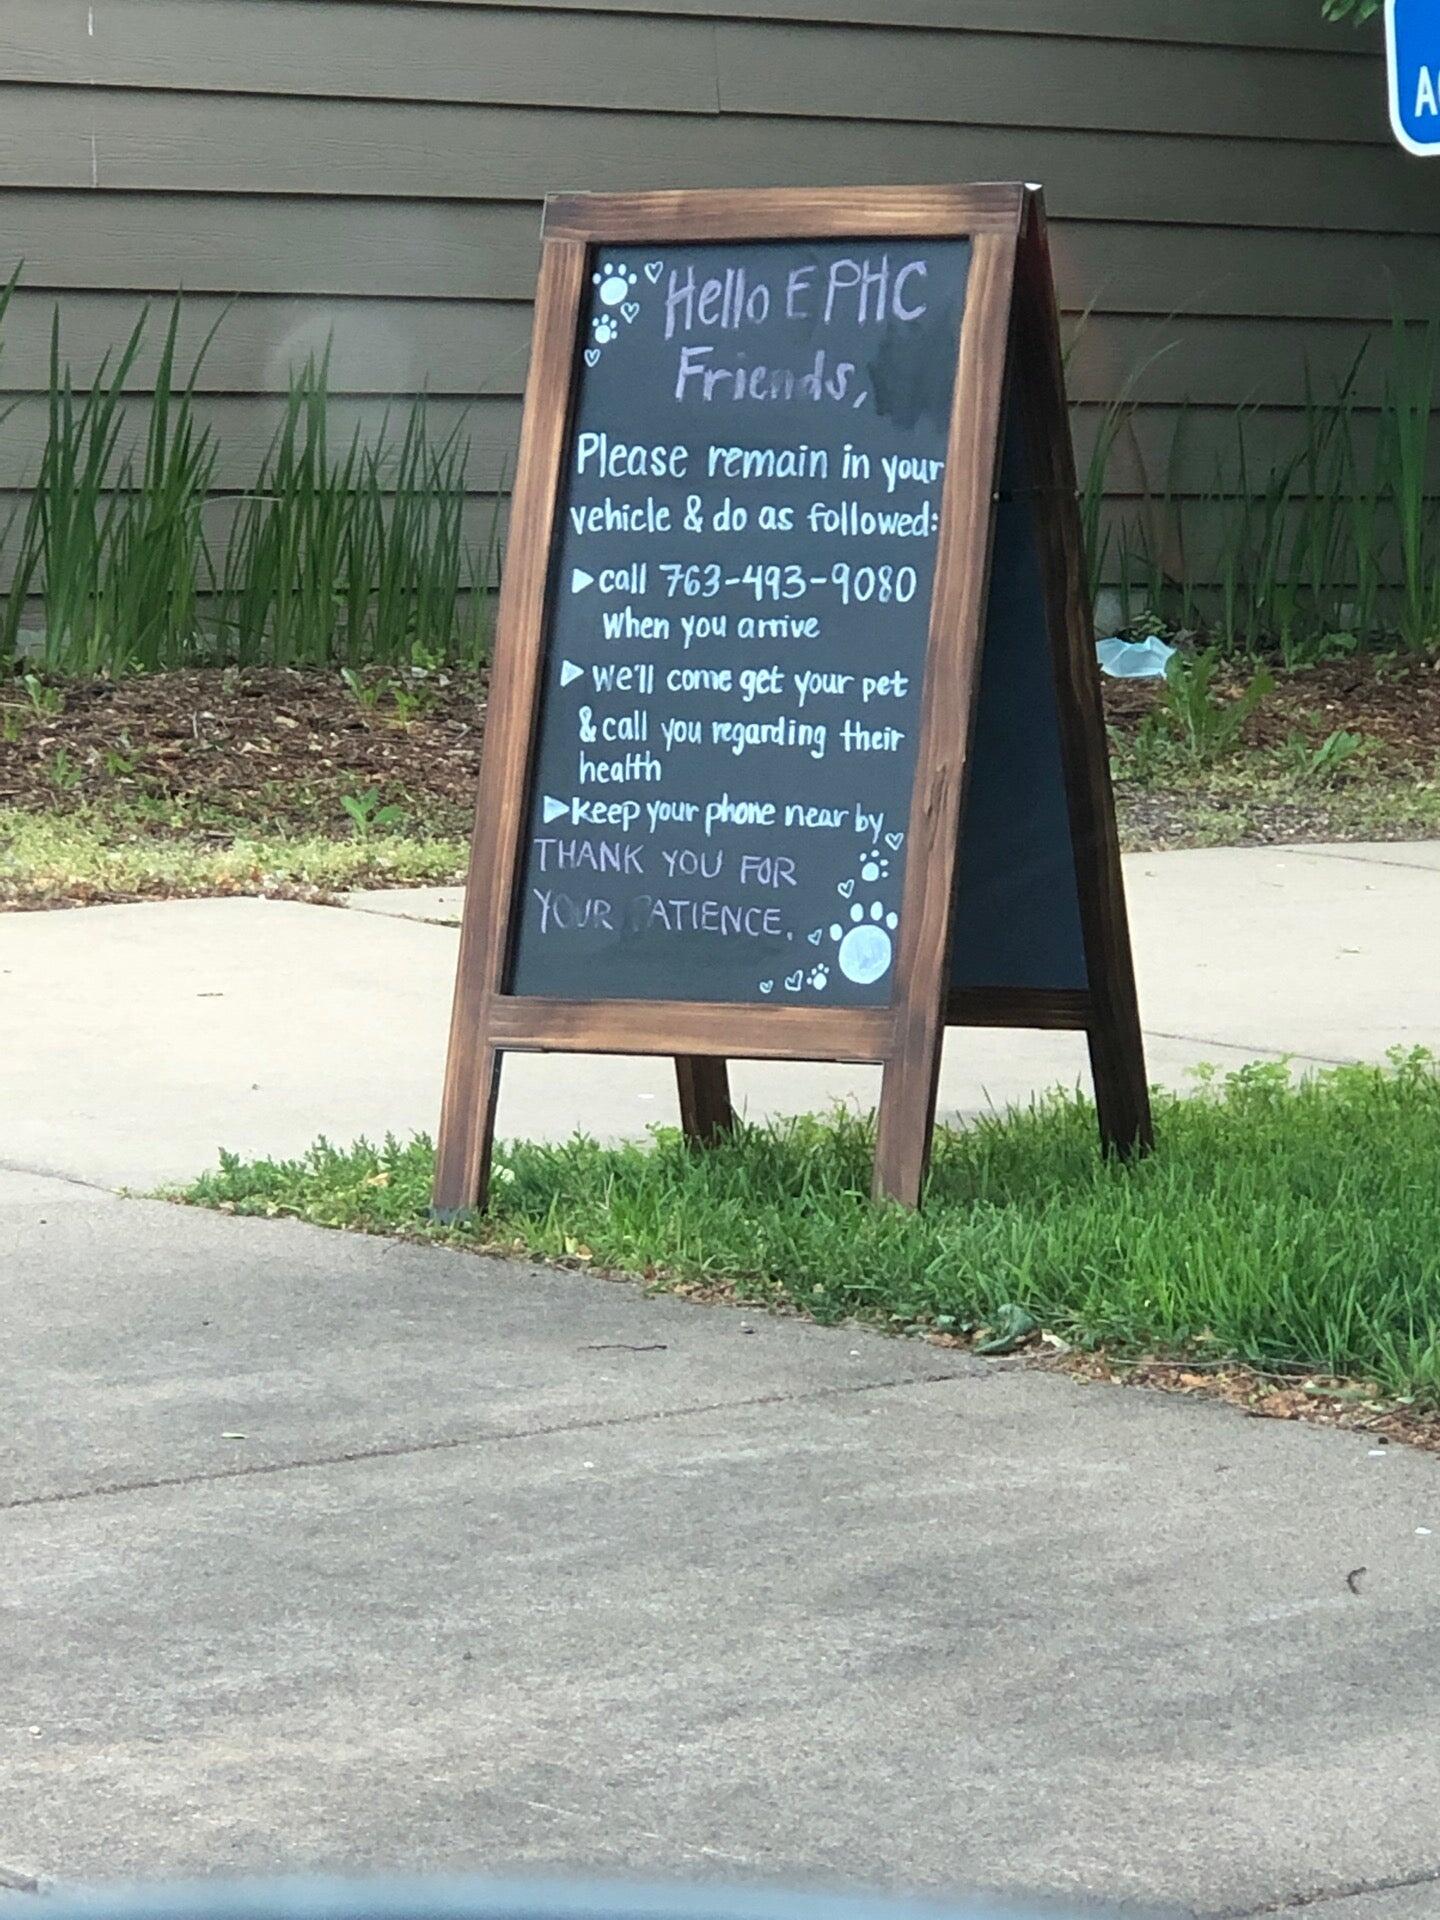 Hello EPHC
Friends,
Please remain in your
vehicle & do as followed:
▶call 763-493-9080
When you arrive
▶we'll come get your pet
& call you regarding their
health
▶keep your phone near by
THANK YOU FOR
YOUR PATIENCE.